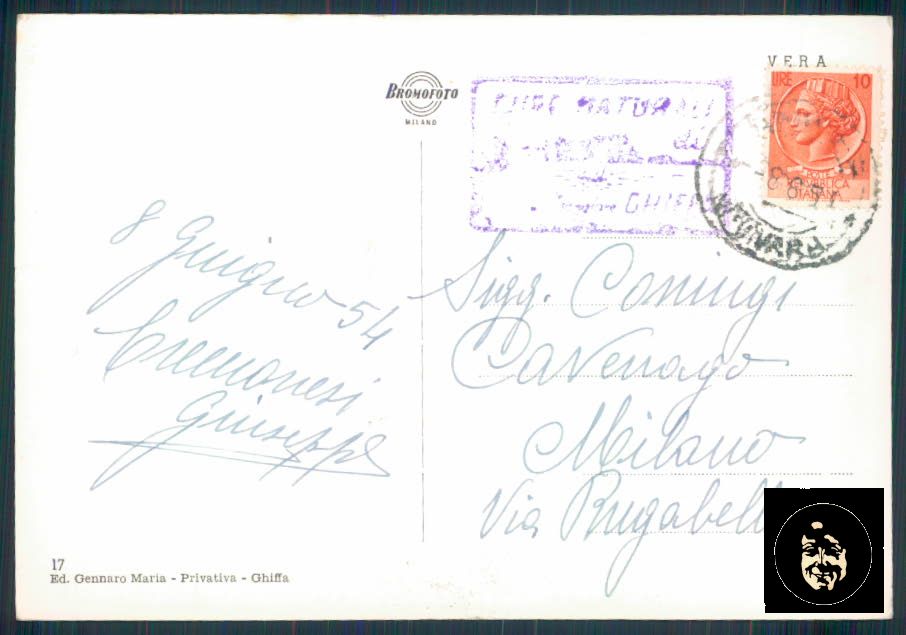 BROMOFOTO
MILANO
VERA
LIRE 10
POSTE
REPUBBLICA
ITALIANA
CURE NATURALI
di
GHIFFA
NOVARA
8 Giugno 54
Cremonesi
Giuseppe
Sigg. Comingi
Cavenago
Milano
Via
17
Ed. Gennaro Maria - Privativa - Ghiffa